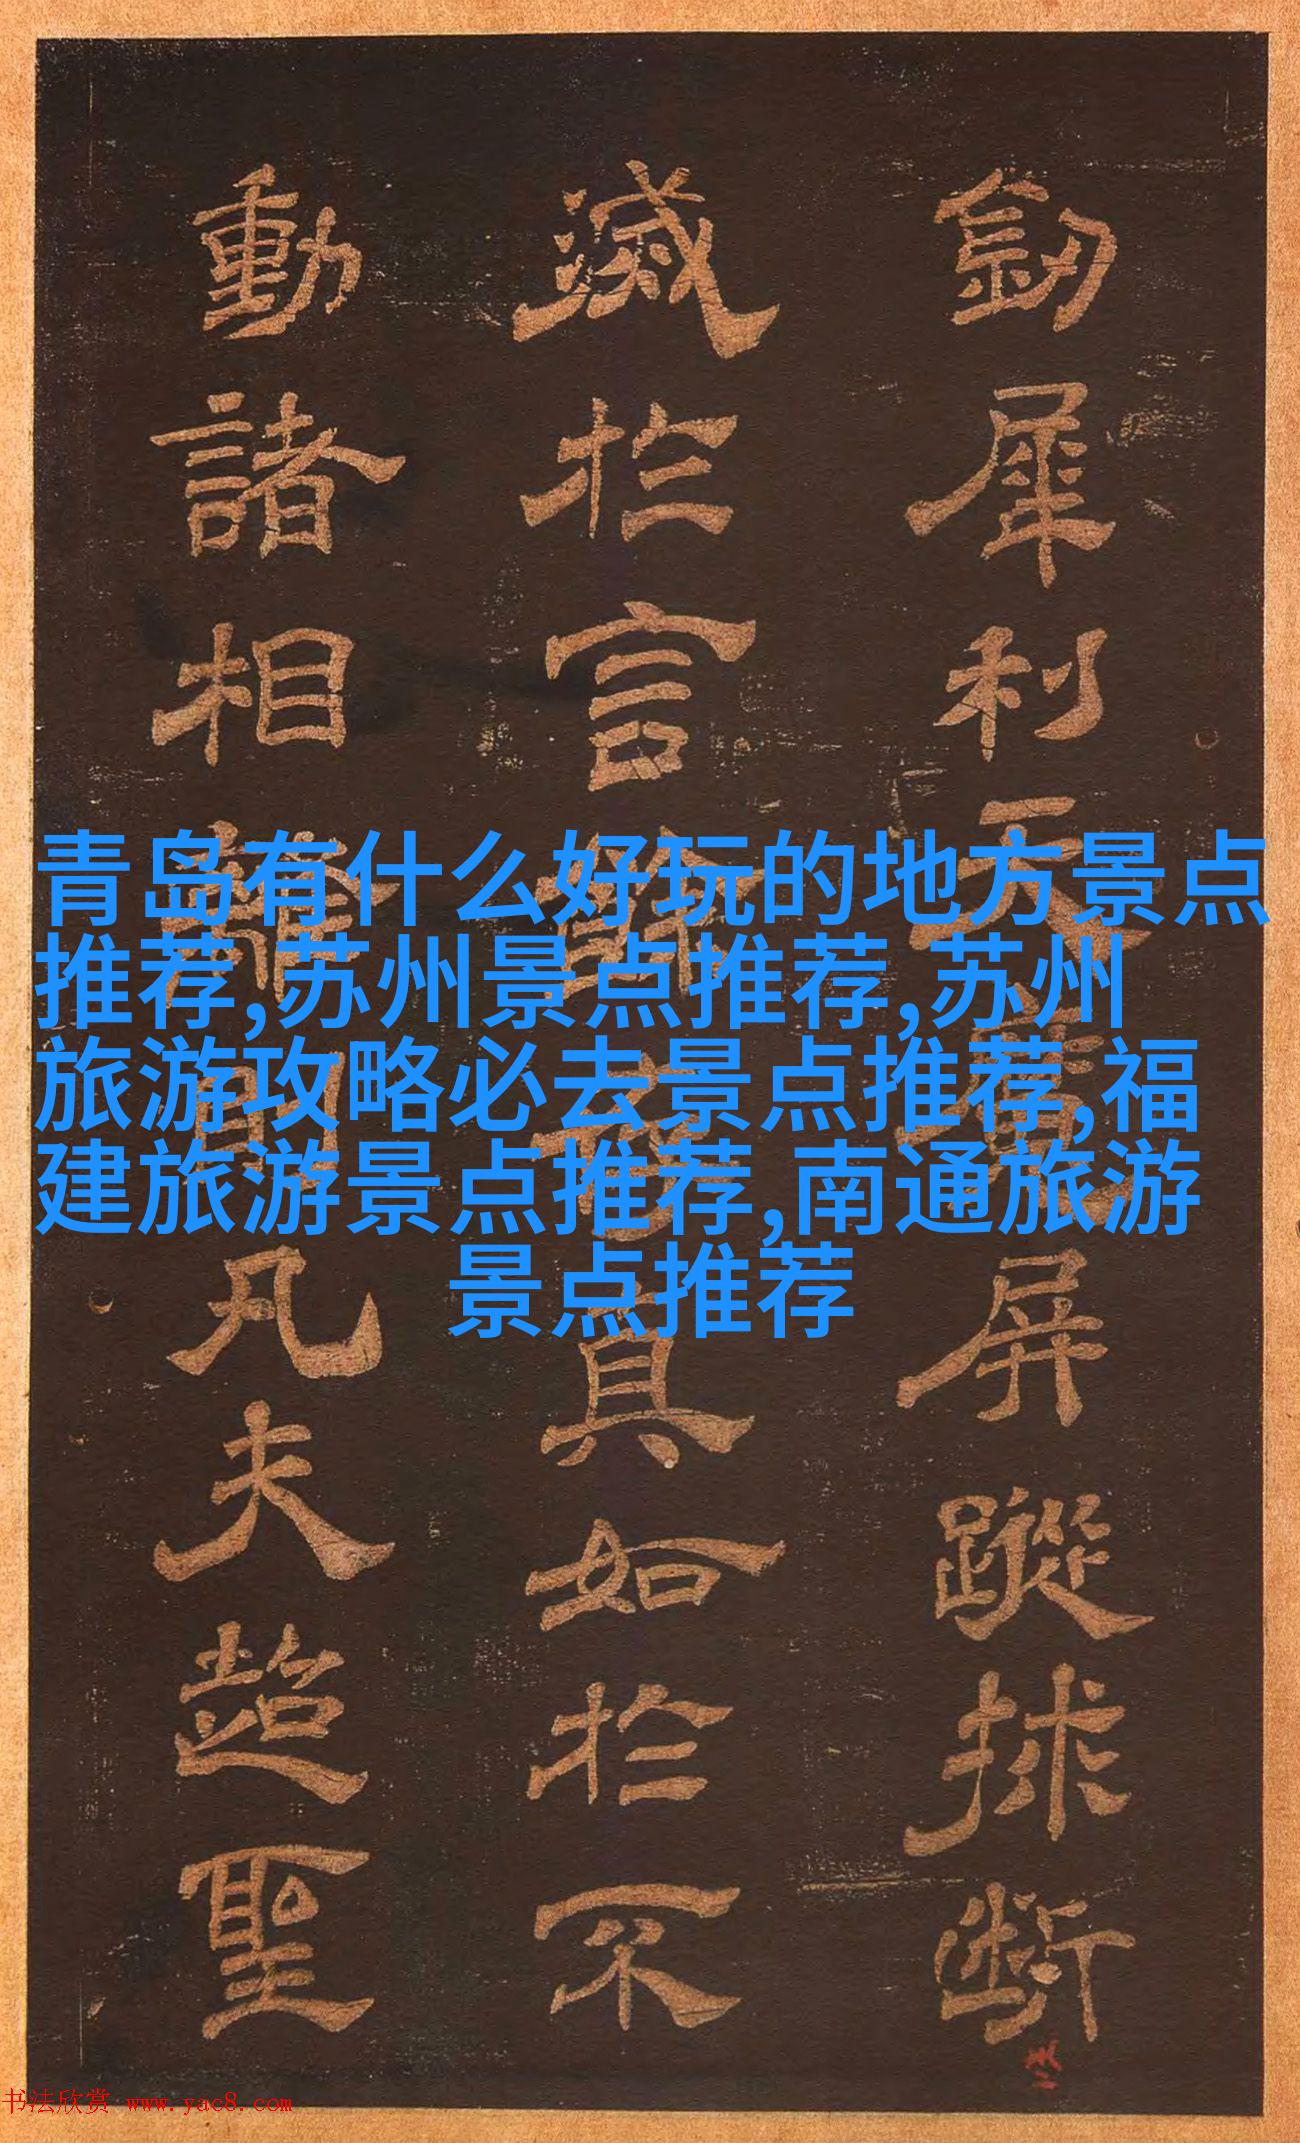 劒犀利天
屏蹤排斷
滅於言
真如於不
動諸相
凡夫超聖
青岛有什么好玩的地方景点
推荐,苏州景点推荐,苏州
旅游攻略必去景点推荐,福
建旅游景点推荐,南通旅游
景点推荐
书法欣赏 www.yac8.com